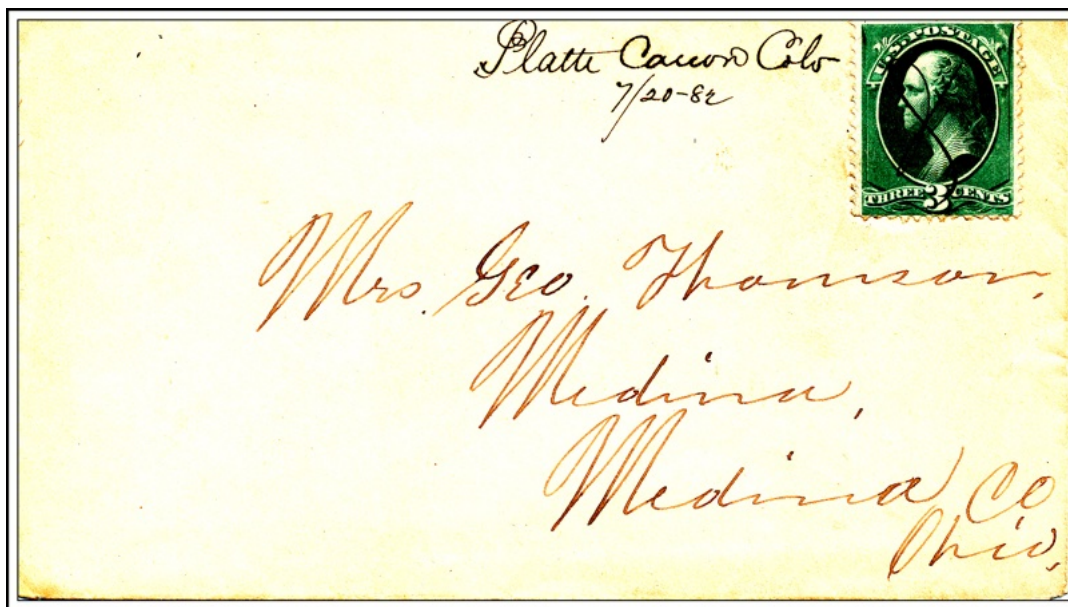 Platte Canon Colo
7/20-82
U.S. POSTAGE
THREE 3 CENTS
Mrs. Geo. Thomson,
Medina,
Medina Co
Ohio,